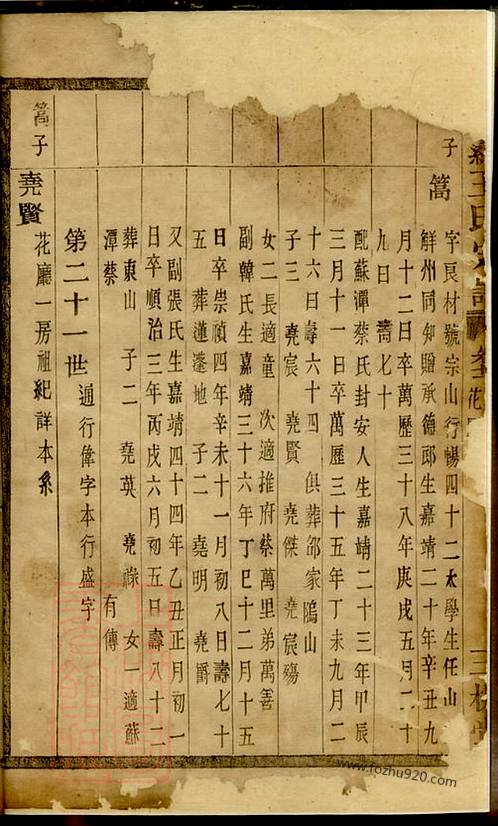 王氏宗譜
子 篙 字良材號宗山行暢四十二太學生任山
解州同知贈承德郎生嘉靖二十年辛丑九
月十二日卒萬歷三十八年庚戌五月二十
九日 壽七十
配蘇潭蔡氏封安人生嘉靖二十三年甲辰
三月十一日卒萬歷三十五年丁未九月二
十六日壽六十四 俱葬邵家隝山
子三 堯宸 堯賢 堯傑 堯宸殤
女二長適童 次適推府蔡萬里弟萬善
副韓氏生嘉靖三十六年丁巳十二月十五
日卒崇禎四年辛未十一月初八日壽七十
五 葬蓮蓬地 子二 堯明 堯爵
又副張氏生嘉靖四十四年乙丑正月初一
日卒順治三年丙戌六月初五日壽八十二
葬東山 子二 堯英 堯祿 女一適蘇
潭蔡 有傳
第二十一世 通行偉字本行盛字
篙子 堯賢 花廳一房祖紀詳本系
www.fozhu920.com